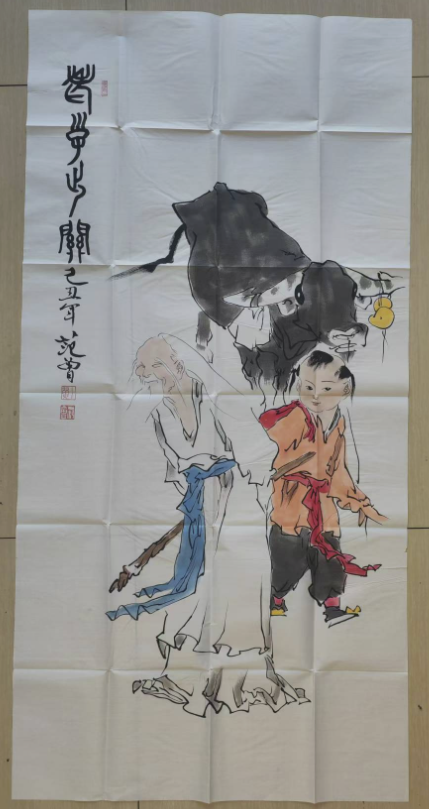 老子出關己丑年范曾